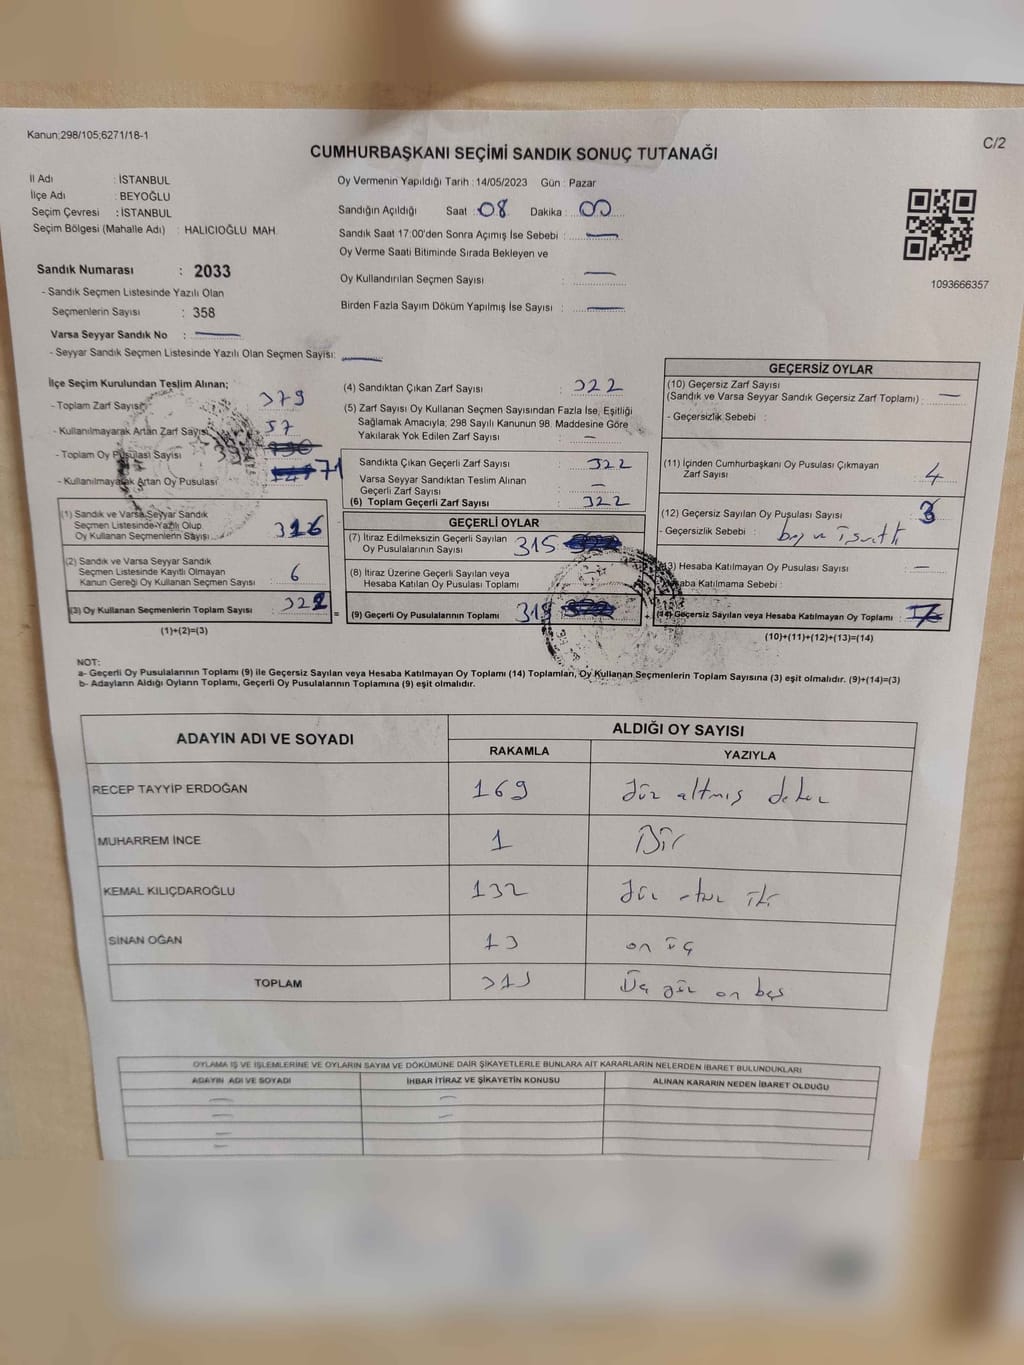 Kanun;298/105;6271/18-1
C/2
CUMHURBAŞKANI SEÇİMİ SANDIK SONUÇ TUTANAĞI
İl Adı : İSTANBUL
İlçe Adı : BEYOĞLU
Seçim Çevresi : İSTANBUL
Seçim Bölgesi (Mahalle Adı) : HALICIOĞLU MAH.
Sandık Numarası : 2033
- Sandık Seçmen Listesinde Yazılı Olan
Seçmenlerin Sayısı : 358
Varsa Seyyar Sandık No :
- Seyyar Sandık Seçmen Listesinde Yazılı Olan Seçmen Sayısı:
Oy Vermenin Yapıldığı Tarih : 14/05/2023 Gün : Pazar
Sandığın Açıldığı Saat : 08 Dakika : 00
Sandık Saat 17:00'den Sonra Açımış İse Sebebi :
Oy Verme Saati Bitiminde Sırada Bekleyen ve
Oy Kullandırılan Seçmen Sayısı :
Birden Fazla Sayım Döküm Yapılmış İse Sayısı :
1093666357
İlçe Seçim Kurulundan Teslim Alınan;
- Toplam Zarf Sayısı 379
- Kullanılmayarak Artan Zarf Sayısı 57
- Toplam Oy Pusulası Sayısı
- Kullanılmayarak Artan Oy Pusulası 71
(1) Sandık ve Varsa Seyyar Sandık
Seçmen Listesinde Yazılı Olup
Oy Kullanan Seçmenlerin Sayısı 316
(2) Sandık ve Varsa Seyyar Sandık
Seçmen Listesinde Kayıtlı Olmayan
Kanun Gereği Oy Kullanan Seçmen Sayısı : 6
(3) Oy Kullanan Seçmenlerin Toplam Sayısı : 322 =
(1)+(2)=(3)
(4) Sandıktan Çıkan Zarf Sayısı : 322
(5) Zarf Sayısı Oy Kullanan Seçmen Sayısından Fazla İse, Eşitliği
Sağlamak Amacıyla; 298 Sayılı Kanunun 98. Maddesine Göre
Yakılarak Yok Edilen Zarf Sayısı : –
Sandıkta Çıkan Geçerli Zarf Sayısı : 322
Varsa Seyyar Sandıktan Teslim Alınan
Geçerli Zarf Sayısı : –
(6) Toplam Geçerli Zarf Sayısı : 322
GEÇERLİ OYLAR
(7) İtiraz Edilmeksizin Geçerli Sayılan
Oy Pusulalarının Sayısı 315
(8) İtiraz Üzerine Geçerli Sayılan veya
Hesaba Katılan Oy Pusulası Toplamı
(9) Geçerli Oy Pusulalarının Toplamı : 315 +
GEÇERSİZ OYLAR
(10) Geçersiz Zarf Sayısı
(Sandık ve Varsa Seyyar Sandık Geçersiz Zarf Toplamı) : —
- Geçersizlik Sebebi :
(11) İçinden Cumhurbaşkanı Oy Pusulası Çıkmayan
Zarf Sayısı : 4
(12) Geçersiz Sayılan Oy Pusulası Sayısı : 3
- Geçersizlik Sebebi :
(13) Hesaba Katılmayan Oy Pusulası Sayısı : —
Hesaba Katılmama Sebebi :
(14) Geçersiz Sayılan veya Hesaba Katılmayan Oy Toplamı :
(10)+(11)+(12)+(13)=(14)
NOT:
a- Geçerli Oy Pusulalarının Toplamı (9) ile Geçersiz Sayılan veya Hesaba Katılmayan Oy Toplamı (14) Toplamları, Oy Kullanan Seçmenlerin Toplam Sayısına (3) eşit olmalıdır. (9)+(14)=(3)
b- Adayların Aldığı Oyların Toplamı, Geçerli Oy Pusulalarının Toplamına (9) eşit olmalıdır.
ADAYIN ADI VE SOYADI ALDIĞI OY SAYISI
RAKAMLA YAZIYLA
RECEP TAYYİP ERDOĞAN 169 Yüz altmış dokuz
MUHARREM İNCE 1 Bir
KEMAL KILIÇDAROĞLU 132 Yüz otuz iki
SİNAN OĞAN 13 on üç
TOPLAM 315 Üç yüz on beş
OYLAMA İŞ VE İŞLEMLERİNE VE OYLARIN SAYIM VE DÖKÜMÜNE DAİR ŞİKAYETLERLE BUNLARA AİT KARARLARIN NELERDEN İBARET BULUNDUKLARI
ADAYIN ADI VE SOYADI İHBAR İTİRAZ VE ŞİKAYETİN KONUSU ALINAN KARARIN NEDEN İBARET OLDUĞU